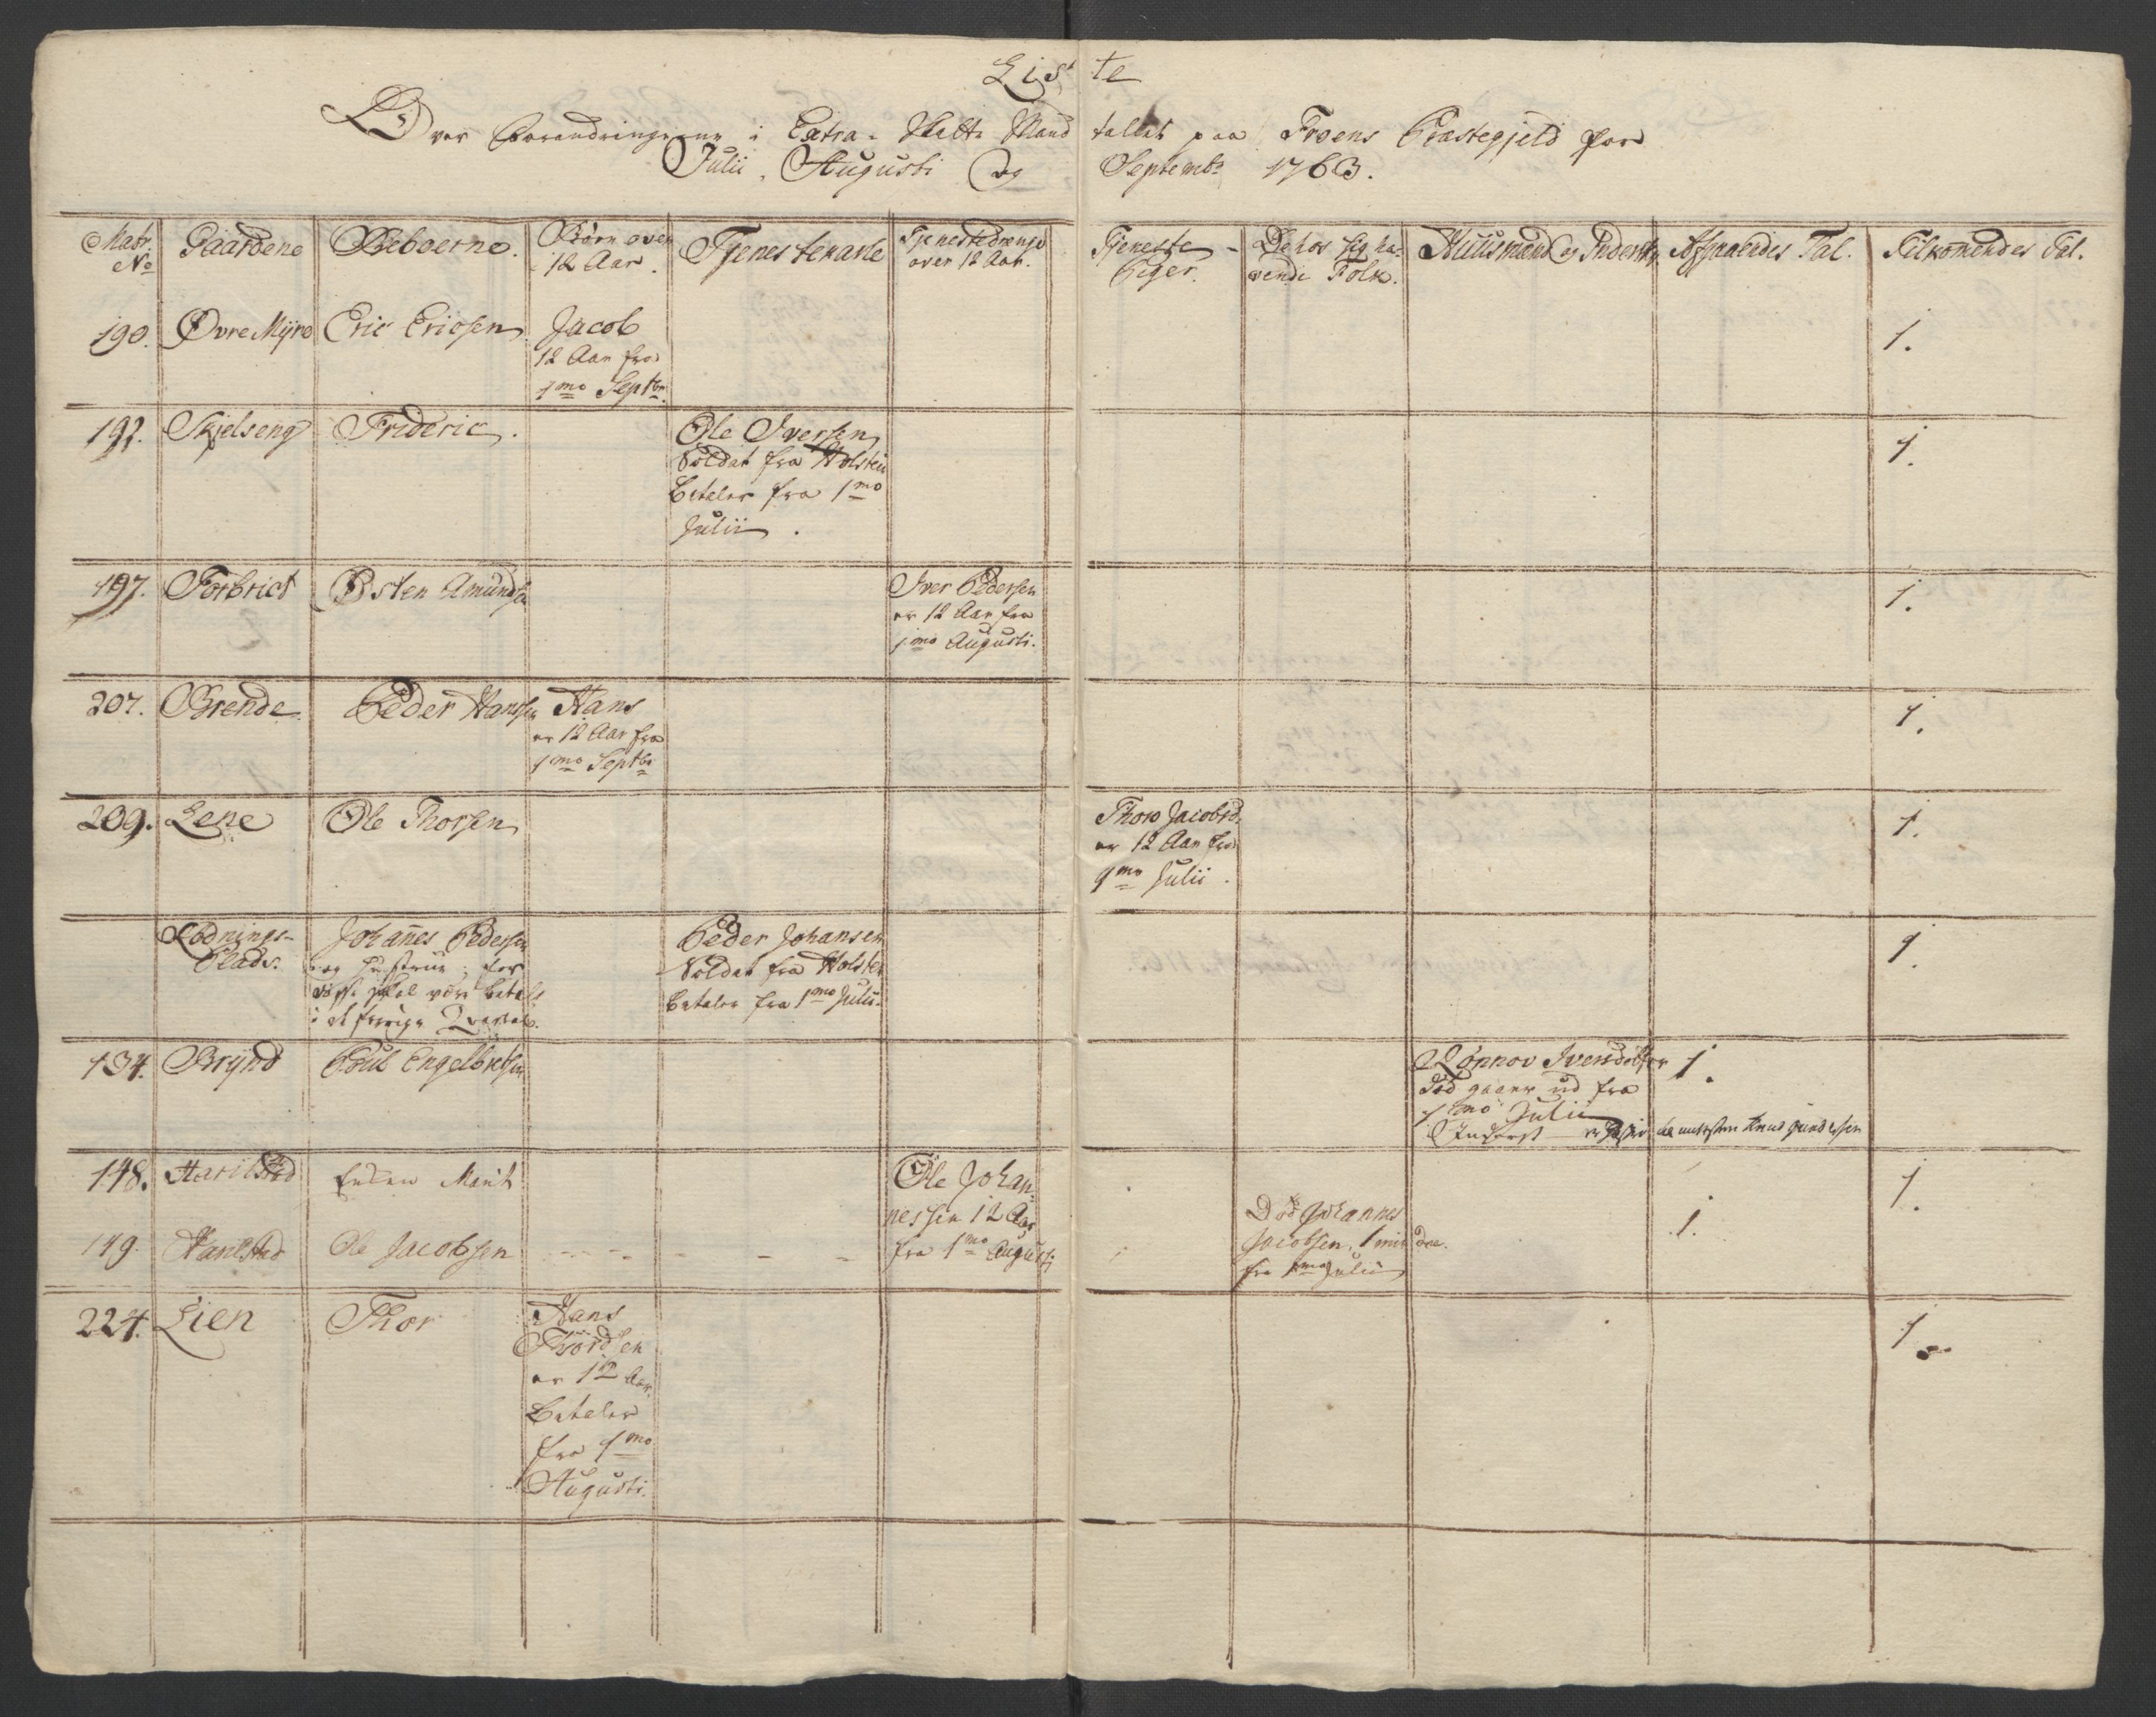 Liste
Over Forandringerne i Extra-Skatte Mandtallet paa Froens Præstegjeld for
Julii, Augusti og Septembr 1763.
Matr. No
Gaardene
Beboerne.
Børn over 12 Aar.
Tjenestekarle
Tjenestedrenge over 12 Aar.
Tjeneste-Piger.
De hos sig havende Folk.
Huusmænd og Inderster
Afgaaendes Tal.
Tilkom̄endes Tal.
190. Øvre Mÿre Eric Ericsen Jacob 1.
12 Aar fra
1mo Septbr.
197. Skjelseng Frideric. Ole Iversen 1.
Soldat fra Holsten
betaler fra 1mo
Julii.
197. Forbrict Østen Amundsen Iver Pedersen 1.
er 12 Aar fra
1mo Augusti.
207. Brende Peder Hansen Hans 1.
er 12 Aar fra
1mo Septbr
209. Lene Ole Thorsen Thore Jacobsd. 1.
er 12 Aar fra
1mo Julii.
Lødnings- Johan̄es Pedersen Peder Johansen 1.
Plads. og Hustrue, for Soldat fra Holsten
skal være betalt betaler fra 1mo Julii.
i det forrige Qvartal.
134. Brÿnd Poul Engelbretsen Rønnov Iversdotter 1.
død gaaer ud fra
1mo Julii
Inderst Knud Gundersen
148. Harildstad Enken Marit Ole Johan- 1.
nessen 12 Aar
fra 1mo Augusti
149. Harilstad Ole Jacobsen Død Johannes 1.
Jacobsen, 1 mindre.
fra 1mo Julii
224. Lien Thor Hans 1.
Thordsen
er 12 Aar.
betaler
fra 1mo
Augusti.